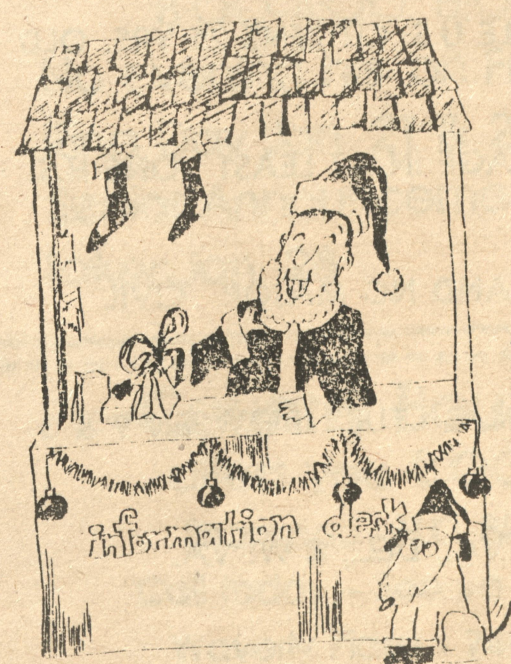 information desk